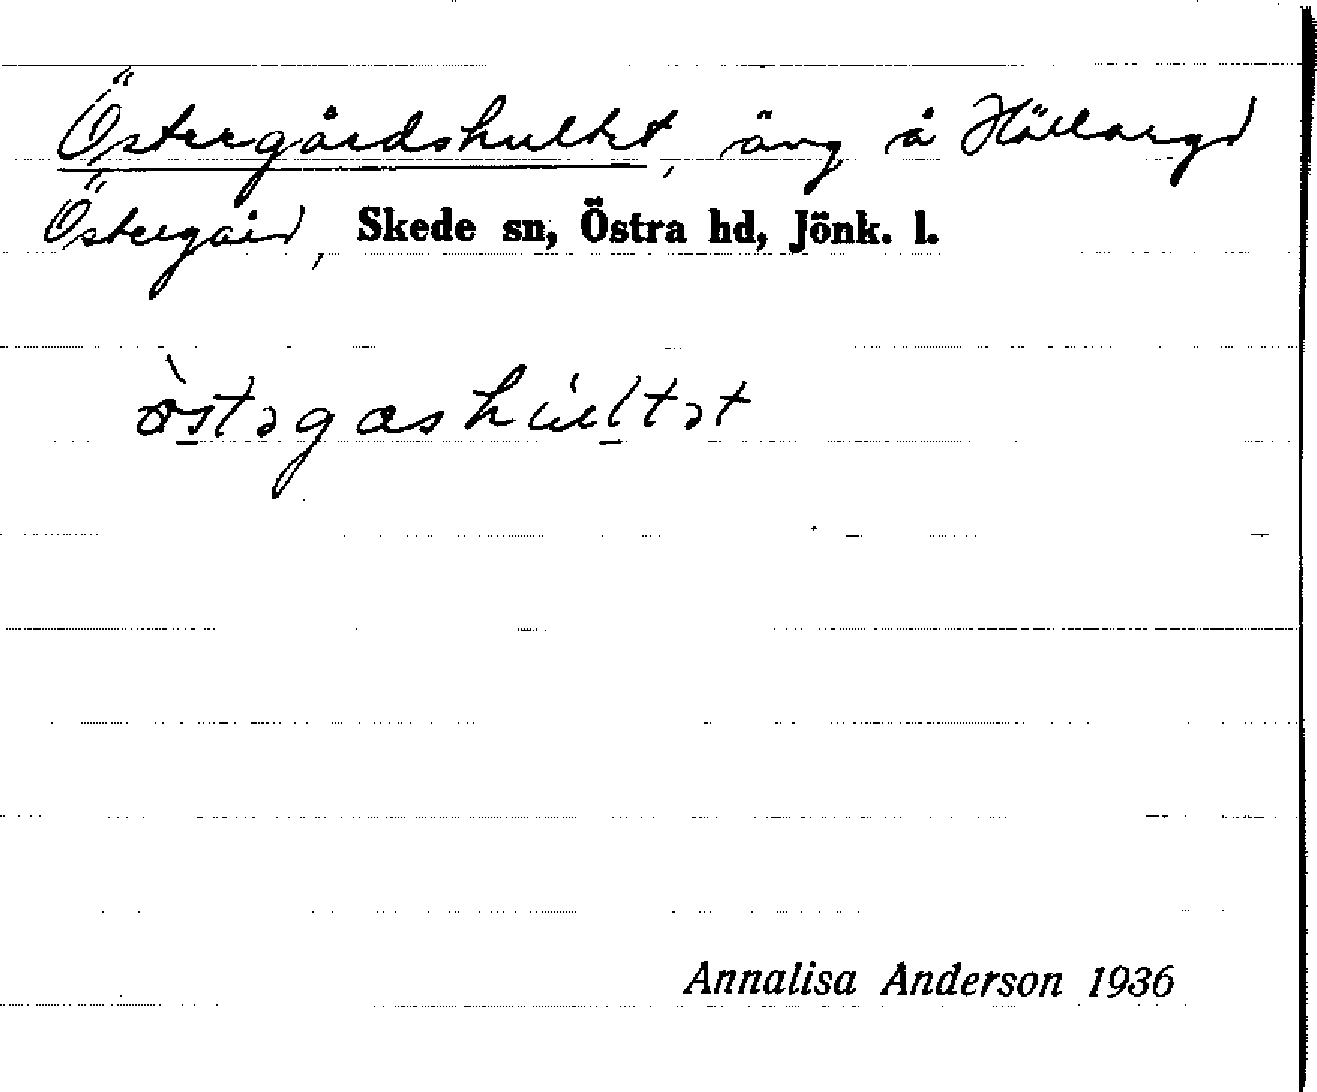 Östergårdshultet, äng å Hällaryd
Östergård, Skede sn, Östra hd, Jönk. l.
Annalisa Anderson 1936